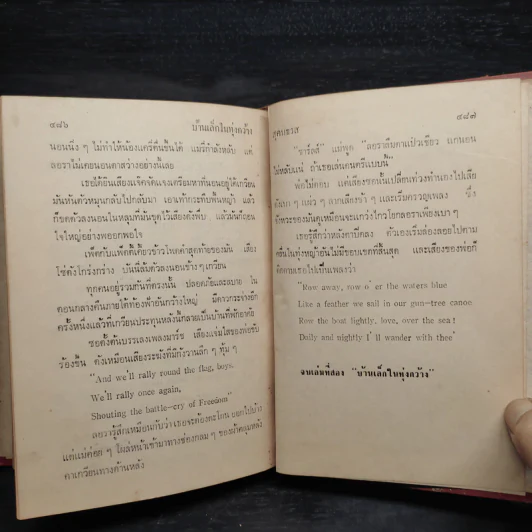 ๔๘๖ บ้านเล็กในทุ่งกว้าง
นอนนิ่ง ๆ ไม่ทำให้น้องแครี่ตื่นขึ้นได้ แมรี่กำลังหลับ แต่
ลอราไม่เคยนอนตาสว่างอย่างนี้เลย
เธอได้ยินเสียงแจ๊คจัดแจงเตรียมหาที่นอนอยู่ใต้เกวียน
มันหันตัวหมุนกลับไปกลับมา เอนเท้ากระทืบพื้นหญ้า แล้ว
ก็ขดตัวลงนอนในหลุมที่มันขุดไว้เสียงดังพึ่บ แล้วมันก็ถอน
ใจใหญ่อย่างพออกพอใจ
เพ็ตกับแพ็ตตี้เคี้ยวข้าวโพดคำสุดท้ายของมัน เสียง
โซ่ดังโกร่งกร่าง บันนี่ล้มตัวลงนอนข้าง ๆ เกวียน
ทุกคนอยู่รวมกันที่ตรงนั้น ปลอดภัยและสบาย ใน
ตอนกลางคืนภายใต้ท้องฟ้าอันกว้างใหญ่ มีดาวกระจ่างอีก
ครั้งหนึ่งแล้วที่เกวียนประทุนหลังนี้กลายเป็นบ้านที่พักอาศัย
ซอตั้งต้นบรรเลงเพลงมาร์ช เสียงแจ่มใสของพ่อขับ
ร้องขึ้น ดังเหมือนเสียงระฆังที่มีกังวานลึก ๆ ทุ้ม ๆ
"And we'll rally round the flag, boys,
We'll rally once again,
Shouting the battle-cry of Freedom"
ลอรารู้สึกเหมือนกับว่าเธอจะต้องตะโกน ออกไปบ้าง
แต่แม่ค่อย ๆ โผล่หน้าเข้ามาทางช่องกลม ๆ ของผ้าคลุมหลัง
คาเกวียนทางด้านหลัง
สุคนธรส ๔๘๗
"ชาร์ลส์" แม่พูด "ลอราลืมตาแป๋วเชียว แกนอน
ไม่หลับแน่ ถ้าเธอเล่นดนตรีแบบนี้"
พ่อไม่ตอบ แต่เสียงซอนั้นเปลี่ยนท่วงทำนองไปเสีย
ลากเสียงช้า ๆ และเริ่มครวญเพลง ซึ่ง
จังหวะของมันดูเหมือนจะแกว่งไกวโยกลอราเพียงเบา ๆ
เธอรู้สึกว่าหลังตาปิดลง ตัวเองเริ่มล่องลอยไปตาม
คลื่นในทุ่งหญ้าอันไม่มีขอบเขตที่สิ้นสุด และเสียงของพ่อก็
ติดตามเธอไปเป็นเพลงว่า
"Row away, row o'er the waters blue
Like a feather we sail in our gum-tree canoe
Row the boat lightly, love, over the sea!
Daily and nightly I'll wander with thee"
จบเล่มที่สอง "บ้านเล็กในทุ่งกว้าง"